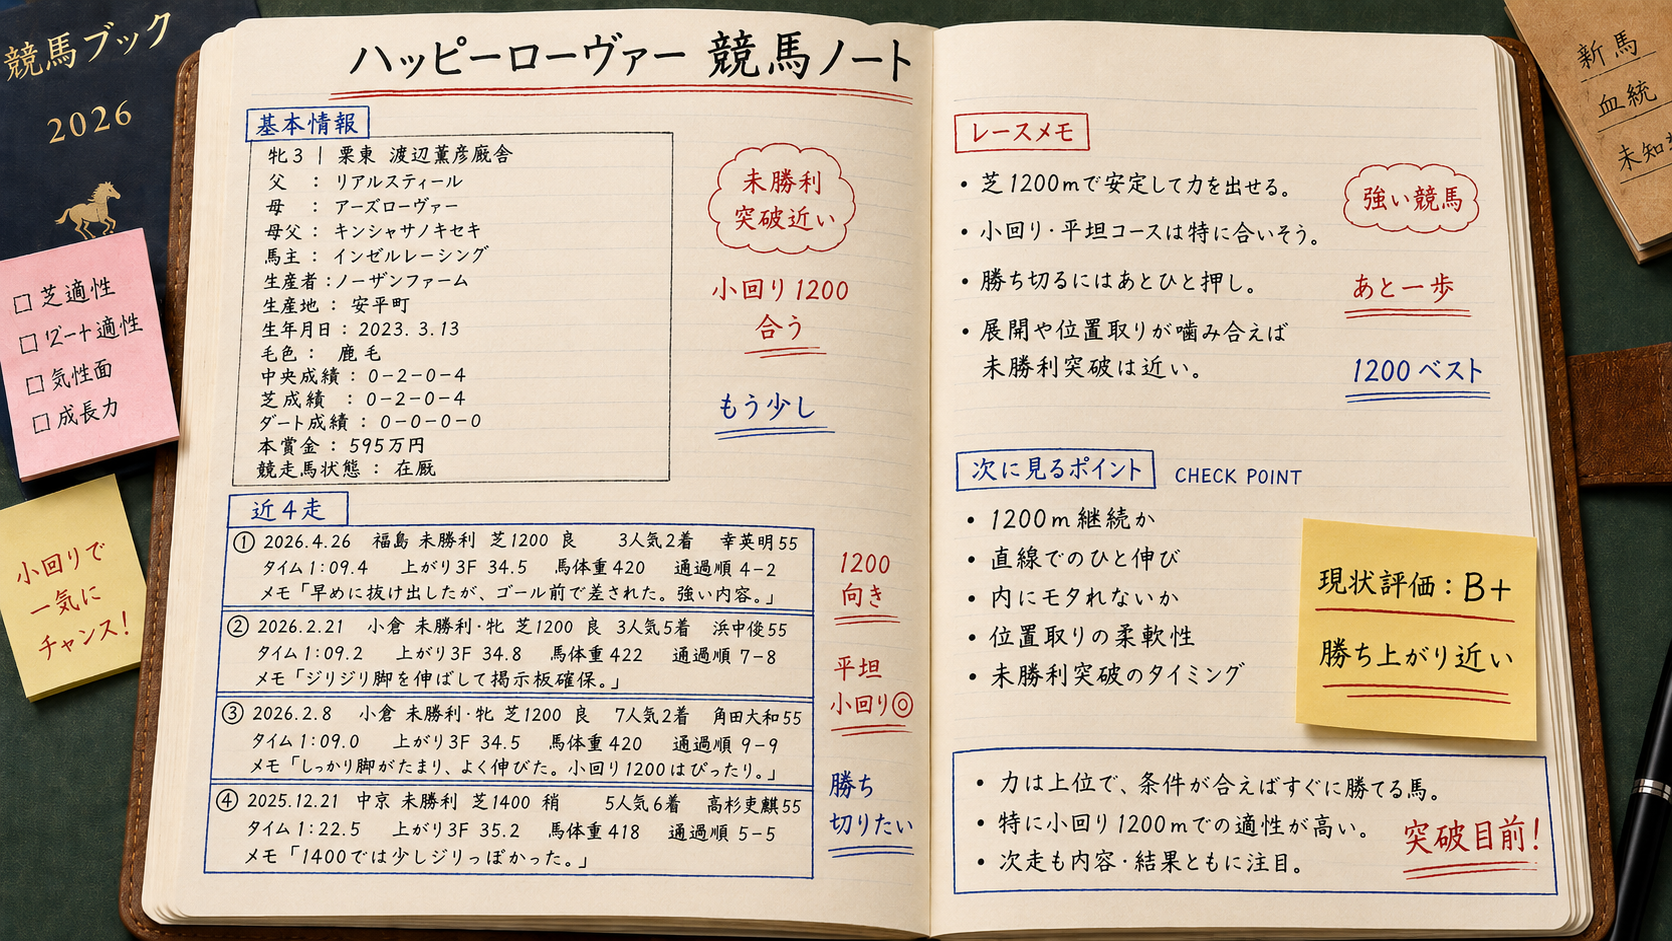 競馬ブック
2026
□ 芝適性
□ ダート適性
□ 気性面
□ 成長力
小回りで
一気に
チャンス!
ハッピーローヴァー 競馬ノート
基本情報
牝3 | 栗東 渡辺薫彦厩舎
父 : リアルスティール
母 : アーズローヴァー
母父 : キンシャサノキセキ
馬主 : インゼルレーシング
生産者 : ノーザンファーム
生産地 : 安平町
生年月日 : 2023. 3.13
毛色 : 鹿毛
中央成績 : 0-2-0-4
芝成績 : 0-2-0-4
ダート成績 : 0-0-0-0
本賞金 : 595万円
競走馬状態 : 在厩
未勝利
突破近い
小回り1200
合う
もう少し
近4走
① 2026.4.26 福島 未勝利 芝1200 良 3人気2着 幸英明55
タイム1:09.4 上がり3F 34.5 馬体重420 通過順 4-2
メモ「早めに抜け出したが、ゴール前で差された。強い内容。」
② 2026.2.21 小倉 未勝利・牝 芝1200 良 3人気5着 浜中俊55
タイム1:09.2 上がり3F 34.8 馬体重422 通過順 7-8
メモ「ジリジリ脚を伸ばして掲示板確保。」
③ 2026.2.8 小倉 未勝利・牝 芝1200 良 7人気2着 角田大和55
タイム1:09.0 上がり3F 34.5 馬体重420 通過順 9-9
メモ「しっかり脚がたまり、よく伸びた。小回り1200はぴったり。」
④ 2025.12.21 中京 未勝利 芝1400 稍 5人気6着 高杉吏麒55
タイム1:22.5 上がり3F 35.2 馬体重418 通過順 5-5
メモ「1400では少しジリっぽかった。」
1200
向き
平坦
小回り◎
勝ち
切りたい
レースメモ
・芝1200mで安定して力を出せる。
・小回り・平坦コースは特に合いそう。
・勝ち切るにはあとひと押し。
・展開や位置取りが噛み合えば
未勝利突破は近い。
強い競馬
あと一歩
1200ベスト
次に見るポイント CHECK POINT
・1200m継続か
・直線でのひと伸び
・内にモタれないか
・位置取りの柔軟性
・未勝利突破のタイミング
現状評価:B+
勝ち上がり近い
・力は上位で、条件が合えばすぐに勝てる馬。
・特に小回り1200mでの適性が高い。
・次走も内容・結果ともに注目。
突破目前!
新馬
血統